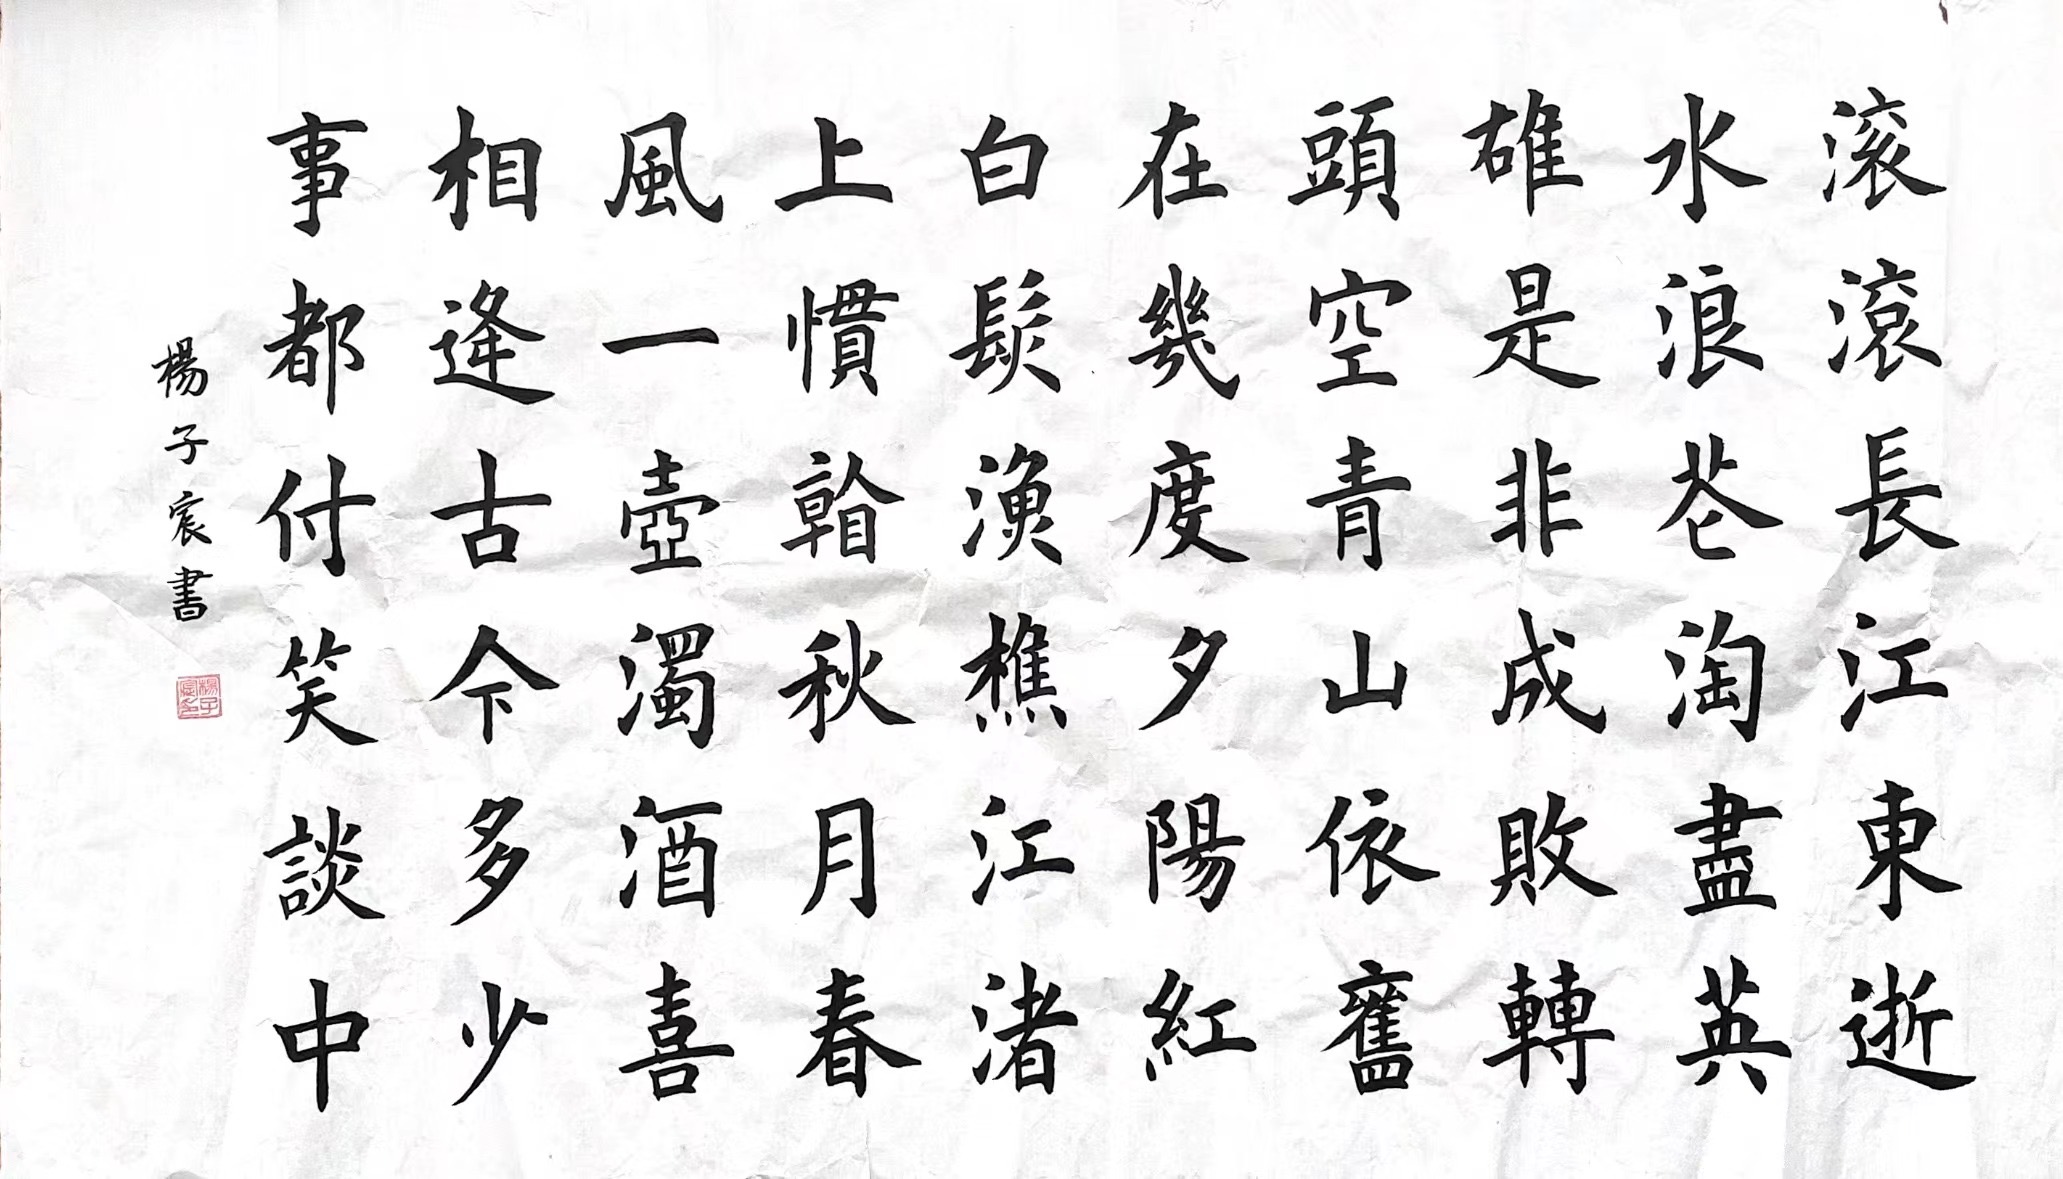 滚滚長江東逝
水浪花淘盡英
雄是非成敗轉
頭空青山依舊
在幾度夕陽紅
白髮漁樵江渚
上慣看秋月春
風一壺濁酒喜
相逢古今多少
事都付笑談中
楊子宸書